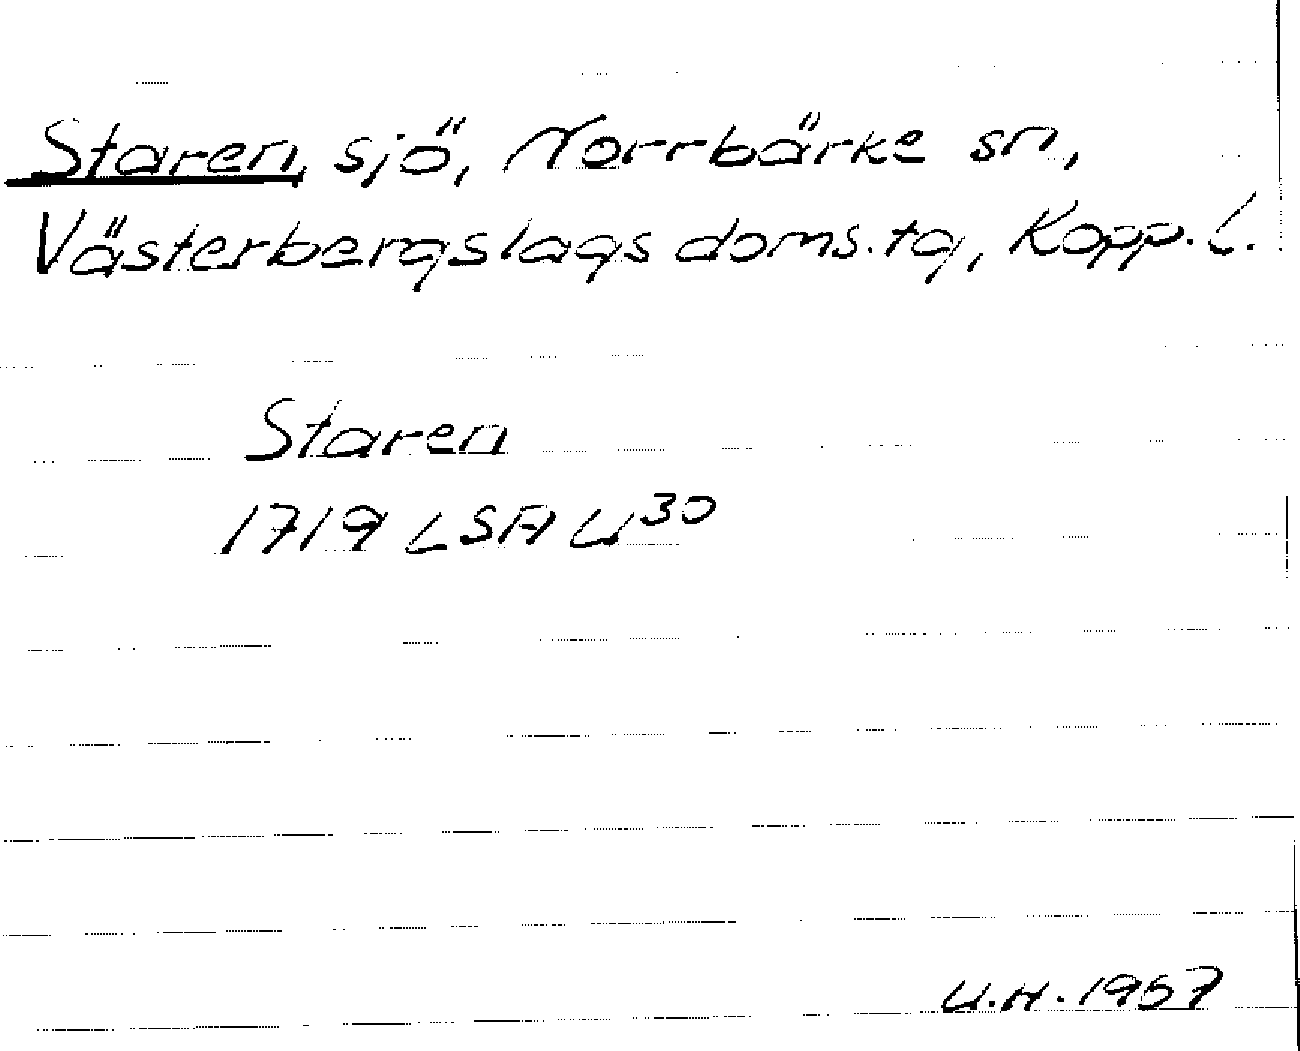 Staren, sjö, Norrbärke sn,
Västerbergslags doms.tg, Kopp. L.
Staren
1719 LSA U³⁰
U.H. 1957